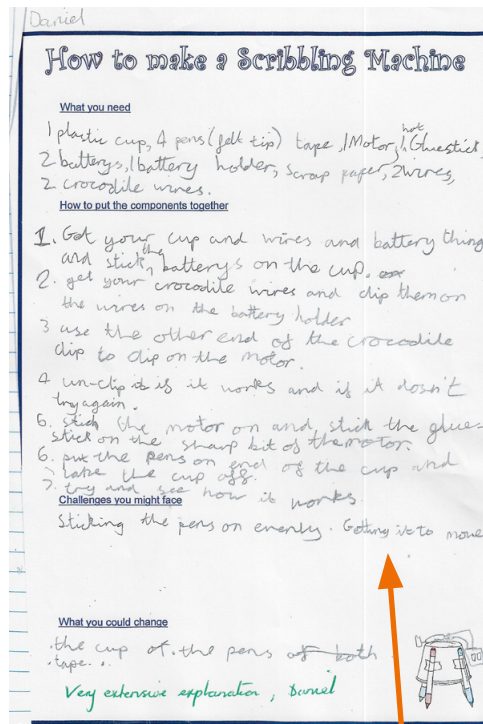 Daniel
How to make a Scribbling Machine
What you need
1 plastic cup, 4 pens (felt tip) tape, 1 Motor, 1 hot Gluestick,
2 batterys, 1 battery holder, scrap paper, 2 wires,
2 crocodile wires.
How to put the components together
1. Get your cup and wires and battery thing
and stick the batterys on the cup.
2. get your crocodile wires and clip them on
the wires on the battery holder
3 use the other end of the crocodile
clip to clip on the motor.
4 un-clip it is it works and if it dosn't
try again.
6. stick the motor on and stick the glue-
stick on the sharp bit of the motor.
6. put the pens on end of the cup and
take the cup off.
7. try and see how it works
Challenges you might face
Sticking the pens on evenly. Getting it to move
What you could change
.the cup of .the pens of both
.tape..
Very extensive explanation, Daniel